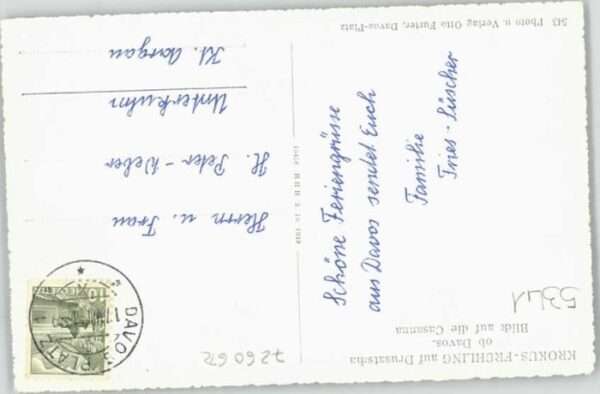 KROKUS-FRÜHLING auf Drusatscha
ob Davos.
Blick auf die Casanna
Schöne Feriengrüsse
aus Davos sendet Euch
Familie
Fries-Lüscher
543 Photo u. Verlag Otto Furter, Davos-Platz
DAVOS PLATZ
10
Herrn u. Frau
H. Peter-Weber
Unterkulm
Kt. Aargau
7260672
5341